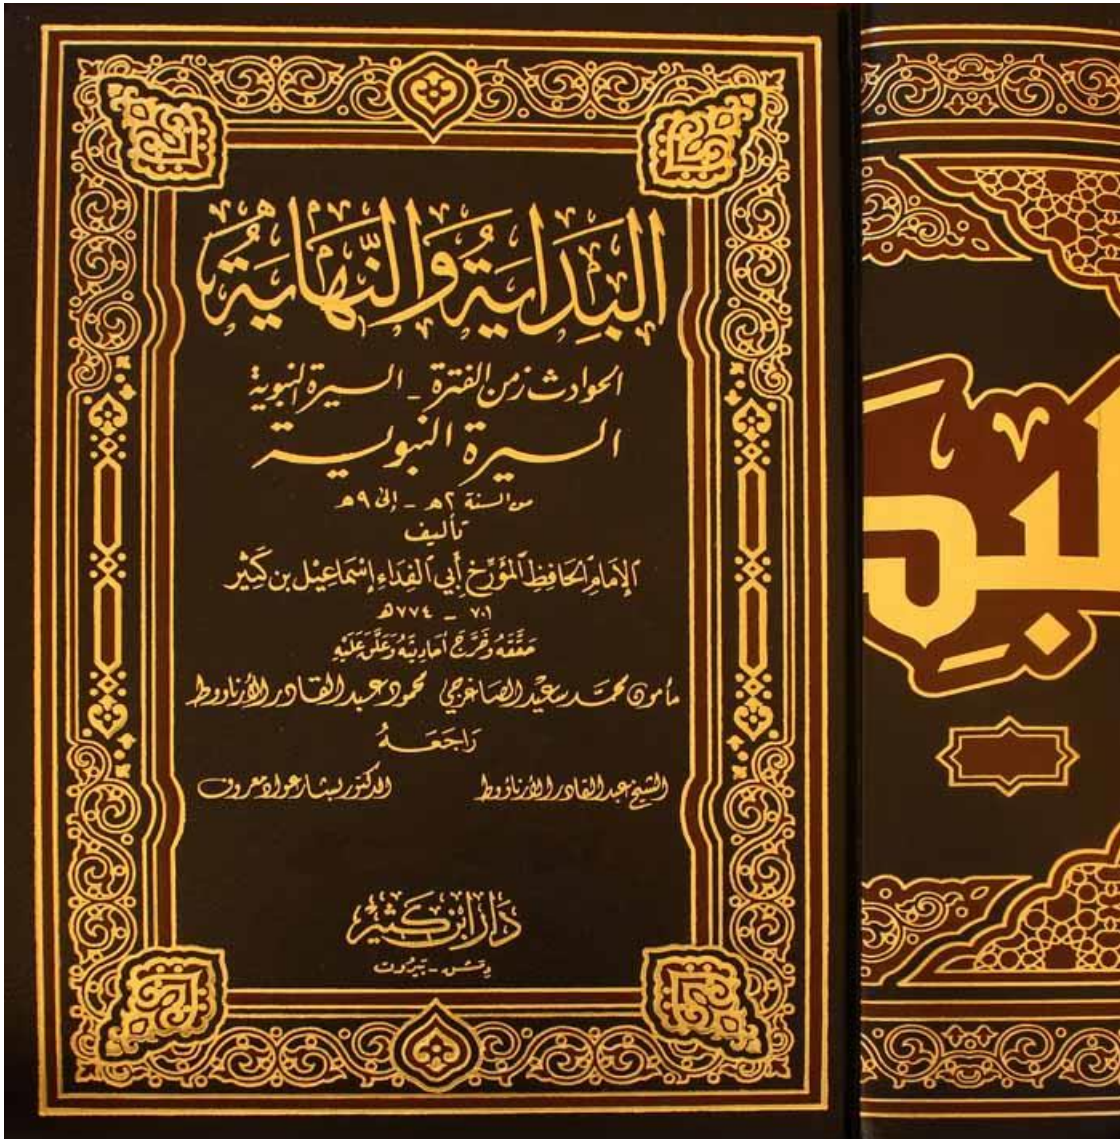 البِدَايَةُ وَالنِّهَايَةُ
الحوادث زمن الفترة - السيرة النبوية
السيرة النبوية
من السنة ٢هـ - إلى ٩هـ
تأليف
الإمام الحافظ المؤرخ أبي الفداء إسماعيل بن كثير
٧٠١ - ٧٧٤هـ
حققه وخرج أحاديثه وعلق عليه
مأمون محمد سعيد الصاغرجي محمود عبد القادر الأرناؤوط
راجعه
الشيخ عبد القادر الأرناؤوط الدكتور بشار عواد معروف
دار ابن كثير
دمشق - بيروت